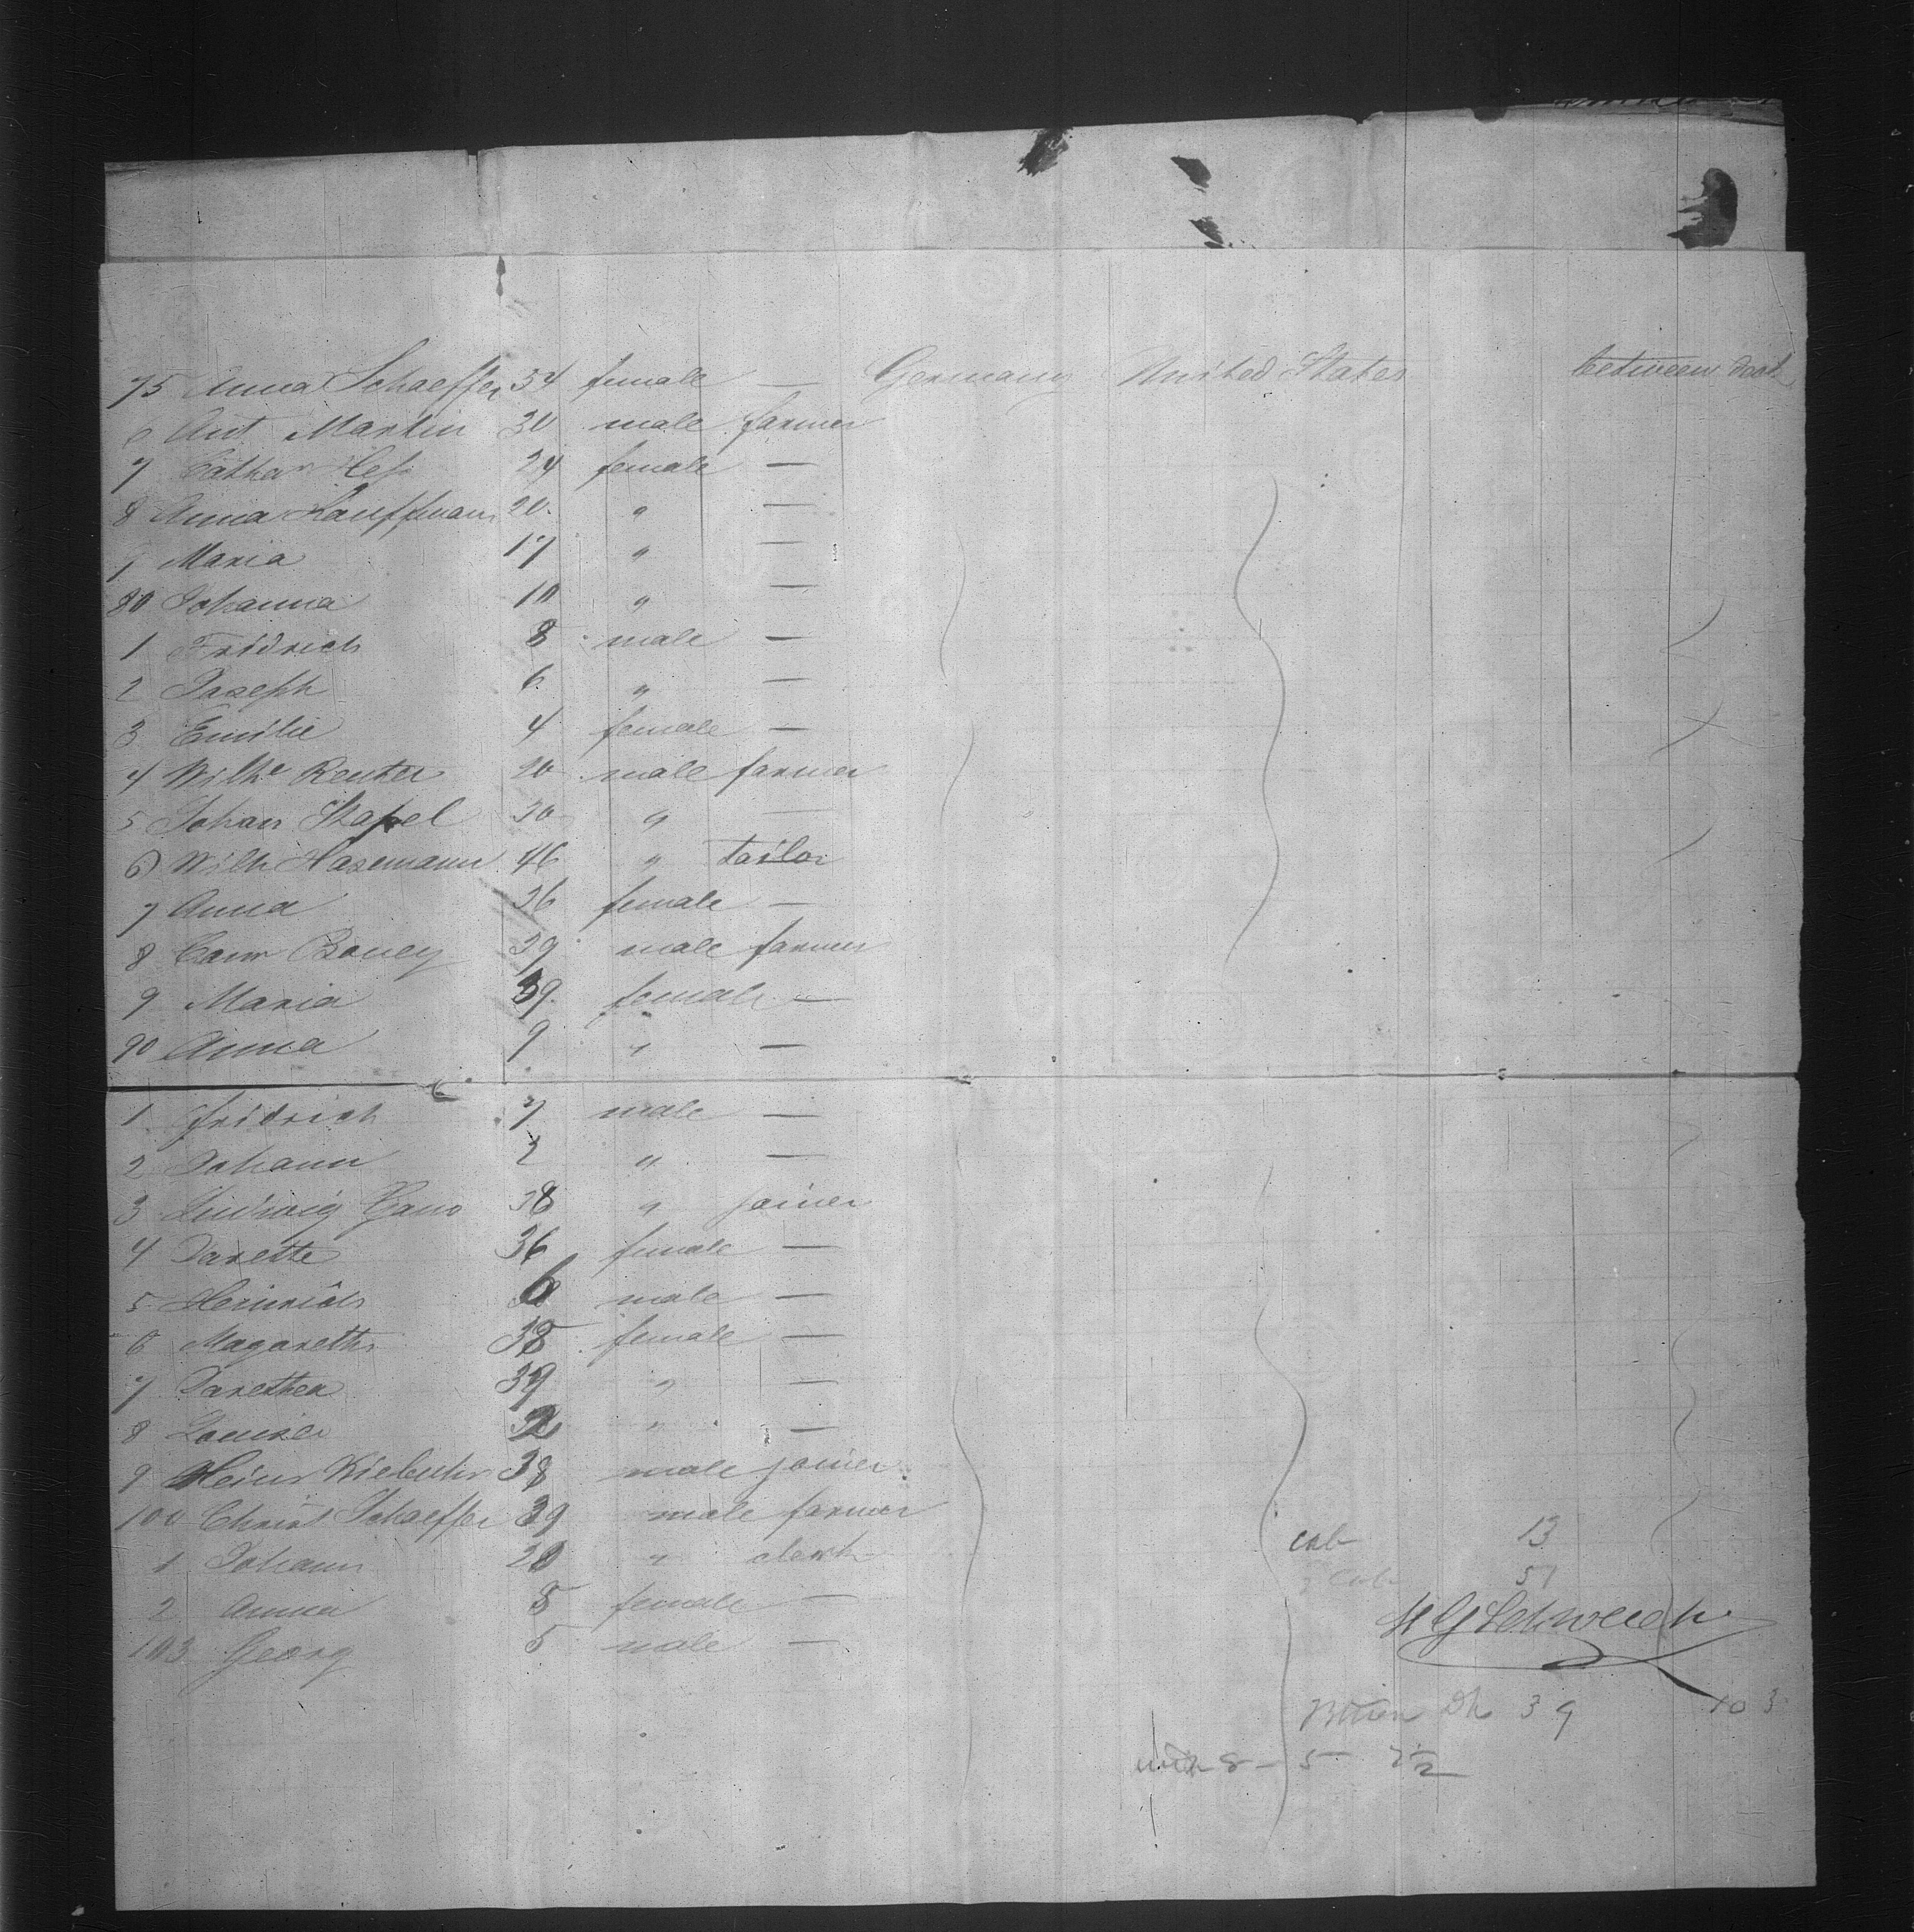 75 Anna Schaeffer 34 female — Germany United States between deck
6 Ant Martin 30 male farmer
7 Cathar Heß 24 female —
8 Anna Kauffmann 20 " —
9 Maria 17 " —
80 Johanna 10 " —
1 Fridrich 8 male —
2 Joseph 6 " —
3 Emilie 4 female —
4 Wilhe Reuter 20 male farmer
5 Johan Stapel 30 " —
6 Wilh Hasemann 46 " tailor
7 Anna 36 female —
8 39 male farmer
9 Maria 39 female —
90 Anna 9 " —
1 Fridrich 7 male —
2 Johann " —
3 Ludwig 38 " joiner
4 36 female —
5 Heinrich 6 male —
6 Magareth 38 female —
7 " —
8 Louise 2 " —
9 Heinr 38 male joiner
100 Christ Schaeffer 39 male farmer
1 Johann " clerk
cab 13
2 Anna 8 female —
2 Cab 51
103 Georg 5 male —
39 103
8 — 5